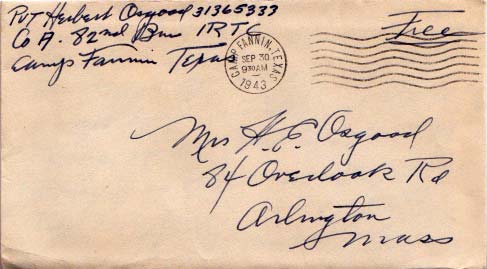 Pvt Herbert Osgood 31365333
Co A. 82nd Bn IRTC
Camp Fannin Texas
CAMP FANNIN, TEXAS
SEP 30
930AM
1943
Free
Mrs H. E. Osgood
84 Overlook Rd
Arlington
Mass